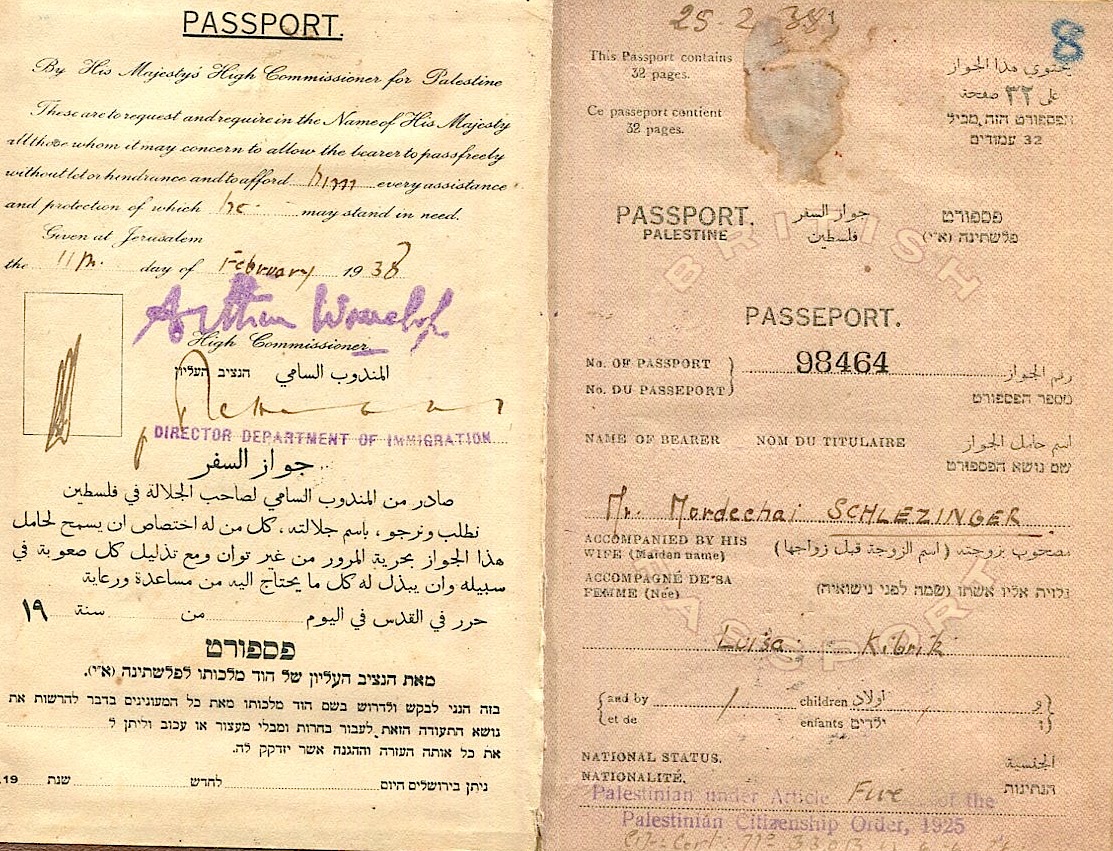 PASSPORT.
By His Majesty's High Commissioner for Palestine
These are to request and require in the Name of His Majesty
all those whom it may concern to allow the bearer to pass freely
without let or hindrance and to afford him every assistance
and protection of which he may stand in need.
Given at Jerusalem
the 11th. day of February 1938
High Commissioner
المندوب السامي הנציב העליון
DIRECTOR DEPARTMENT OF IMMIGRATION
جواز السفر
صادر من المندوب السامي لصاحب الجلالة في فلسطين
نطلب ونرجو، باسم جلالته، كل من له اختصاص ان يسمح لحامل
هذا الجواز بحرية المرور من غير توان ومع تذليل كل صعوبة في
سبيله وان يبذل له كل ما يحتاج اليه من مساعدة ورعاية
حرر في القدس في اليوم من سنة ١٩
פספורט
מאת הנציב העליון של הוד מלכותו לפלשתינה (א״י).
בזה הנני לבקש ולדרוש בשם הוד מלכותו מאת כל המעונינים בדבר להרשות את
נושא התעודה הזאת לעבור בחרות ומבלי מעצור או עכוב וליתן ל
את כל אותה העזרה וההגנה אשר יזדקק לה.
ניתן בירושלים היום לחדש שנת 19
25 2 38
8
This Passport contains
32 pages.
Ce passeport contient
32 pages.
يحتوي هذا الجواز
على ٣٢ صفحة
הפספורט הזה מכיל
32 עמודים
PASSPORT. جواز السفر פספורט
PALESTINE فلسطين פלשתינה (א״י)
BRITISH
PASSEPORT.
No. OF PASSPORT
No. DU PASSEPORT
98464
رقم الجواز
מספר הפספורט
NAME OF BEARER NOM DU TITULAIRE اسم حامل الجواز
שם נושא הפספורט
Mr. Mordechai SCHLEZINGER
ACCOMPANIED BY HIS
WIFE (Maiden name)
مصحوب بزوجته (اسم الزوجة قبل زواجها)
ACCOMPAGNÉ DE SA
FEMME (Née)
נלוית אליו אשתו (שמה לפני נישואיה)
PASSPORT
Luisa Kibrik
and by / children اولاد و
et de enfants ילדים ו
NATIONAL STATUS. الجنسية
NATIONALITÉ. הנתינות
Palestinian under Article Five of the
Palestinian Citizenship Order, 1925